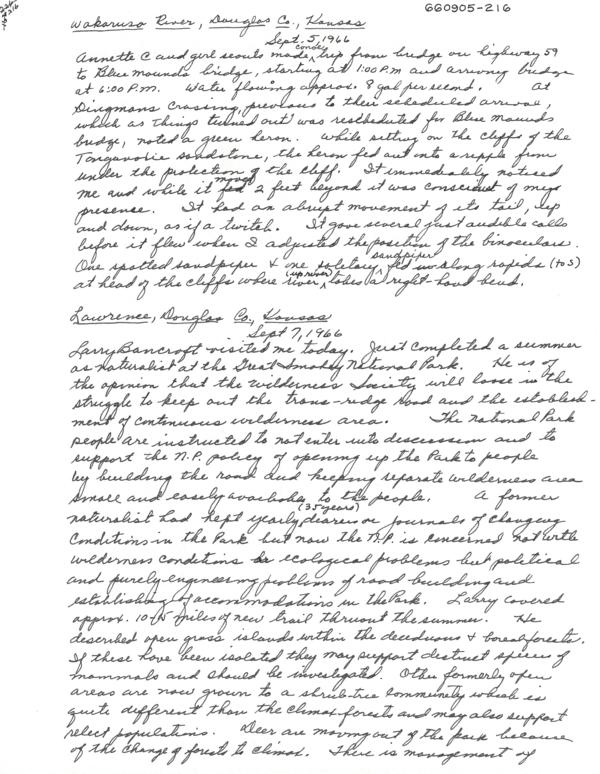 660905-216
Wakarusa River, Douglas Co., Kansas
Sept. 5, 1966
Annette C and girl scouts made canoe trip from bridge on highway 59
to Blue mounds bridge, starting at 1:00 P.M and arriving bridge
at 6:00 P.M. Water flowing approx. 8 gal per second. At
Dingmans Crossing, previous to their scheduled arrival,
which as things turned out was rescheduled for Blue Mounds
bridge, noted a green heron. While sitting on the cliffs of the
Tonganoxie sandstone, the heron fed out onto a ripple from
under the protection of the cliff. It immediately noticed
me and while it fed moved 2 feet beyond it was conscious of my
presence. It had an abrupt movement of its tail, up
and down, as if a twitch. It gave several just audible calls
before it flew when I adjusted the position of the binoculars.
One spotted sandpiper & one solitary sandpiper fed in along rapids (to S)
at head of the cliffs where (up river) river takes a right-hand bend.
Lawrence, Douglas Co., Kansas
Sept 7, 1966
Larry Bancroft visited me today. Just completed a summer
as naturalist at the Great Smokey National Park. He is of
the opinion that the Wilderness Society will loose in the
struggle to keep out the trans-ridge road and the establish-
ment of continuous wilderness area. The National Park
people are instructed to not enter into discussion and to
support the N.P. policy of opening up the Park to people
by building the road and keeping separate wilderness area
small and easily available to the people. A former
naturalist had kept yearly (35 years) diaries or journals of changing
conditions in the Park but now the N.P. is concerned not with
wilderness conditions or ecological problems but political
and purely engineering problems of road building and
establishing of accommodations in the Park. Larry covered
approx. 10-15 miles of new trail thruout the summer. He
described open grass islands within the deciduous & boreal forests.
If these have been isolated they may support distinct species of
mammals and should be investigated. Other formerly open
areas are now grown to a shrub-tree community which is
quite different than the climax forests and may also support
relect populations. Deer are moving out of the park because
of the change of forests to climax. There is management of